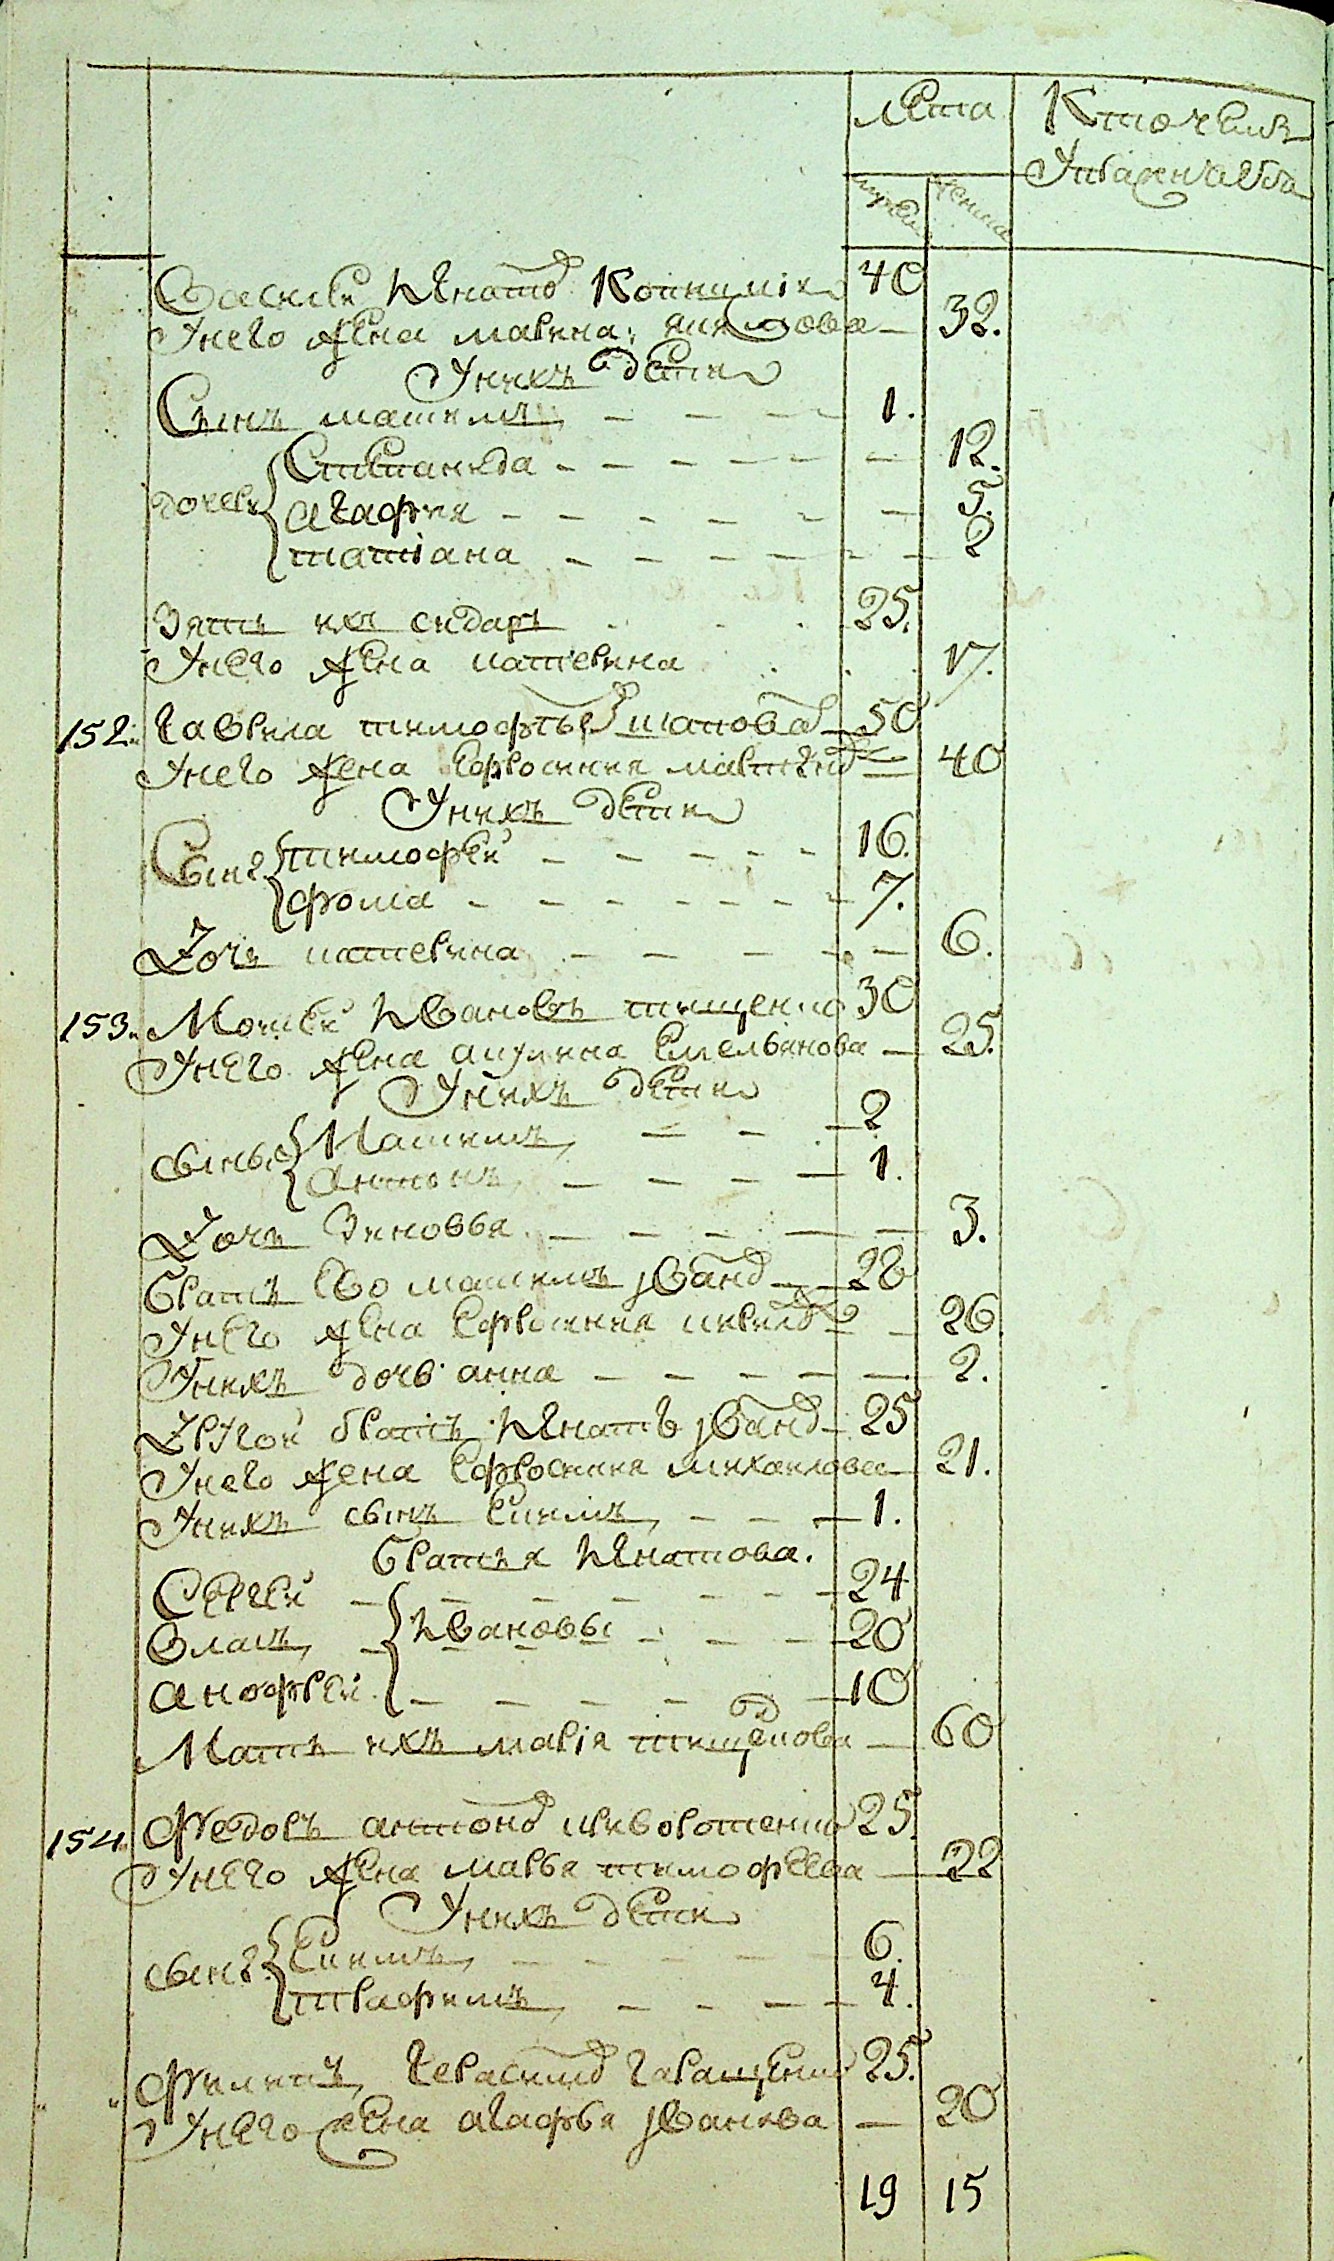 лета
Кто чем
мужеска женска
40
У него жена марина 32.
У нихъ дети
Сынъ максимъ 1.
Степанида 12.
дочери агафия 5.
татіана 2
Зять ихъ сидоръ 25.
У него жена катерина 17.
152. гаврила тимофѣевъ 50
У него жена ефросиния 40
У нихъ дети
Сыны тимофей 16.
фома 7.
Дочь катерина 6.
153. Мойсей Ивановъ тищенко 30
У него жена акулина емельянова 25.
У нихъ дети
сыны Максимъ 2
антонъ 1.
Дочь Зиновья 3.
братъ ево максимъ іванов 28
У него жена ефросиния 26.
У нихъ дочь анна 2.
Другой братъ Игнатъ іванов 25
У него жена ефросиния михайлова 21.
У нихъ сынъ Екимъ 1.
братья Игнатова.
Сергей 24
Власъ Ивановы 20
анофрей 10
Мать ихъ марія тищенкова 60
154. Федоръ антонов криворотенко 25.
У него жена марья тимофеева 22
У нихъ дети
сыны Екимъ 6.
трафимъ 4.
Филипъ герасимов геращенко 25.
У него жена агафья іванова 20
19 15